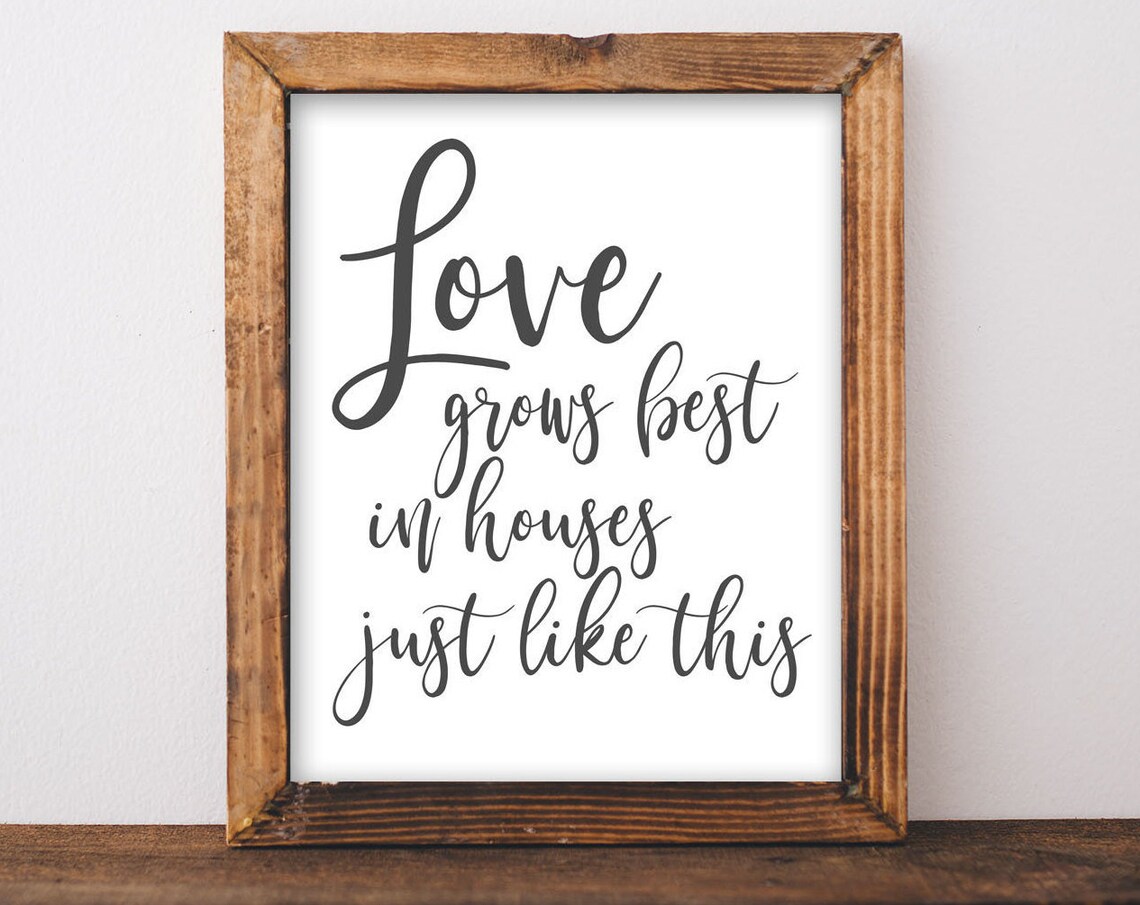 Love
grows best
in houses
just like this